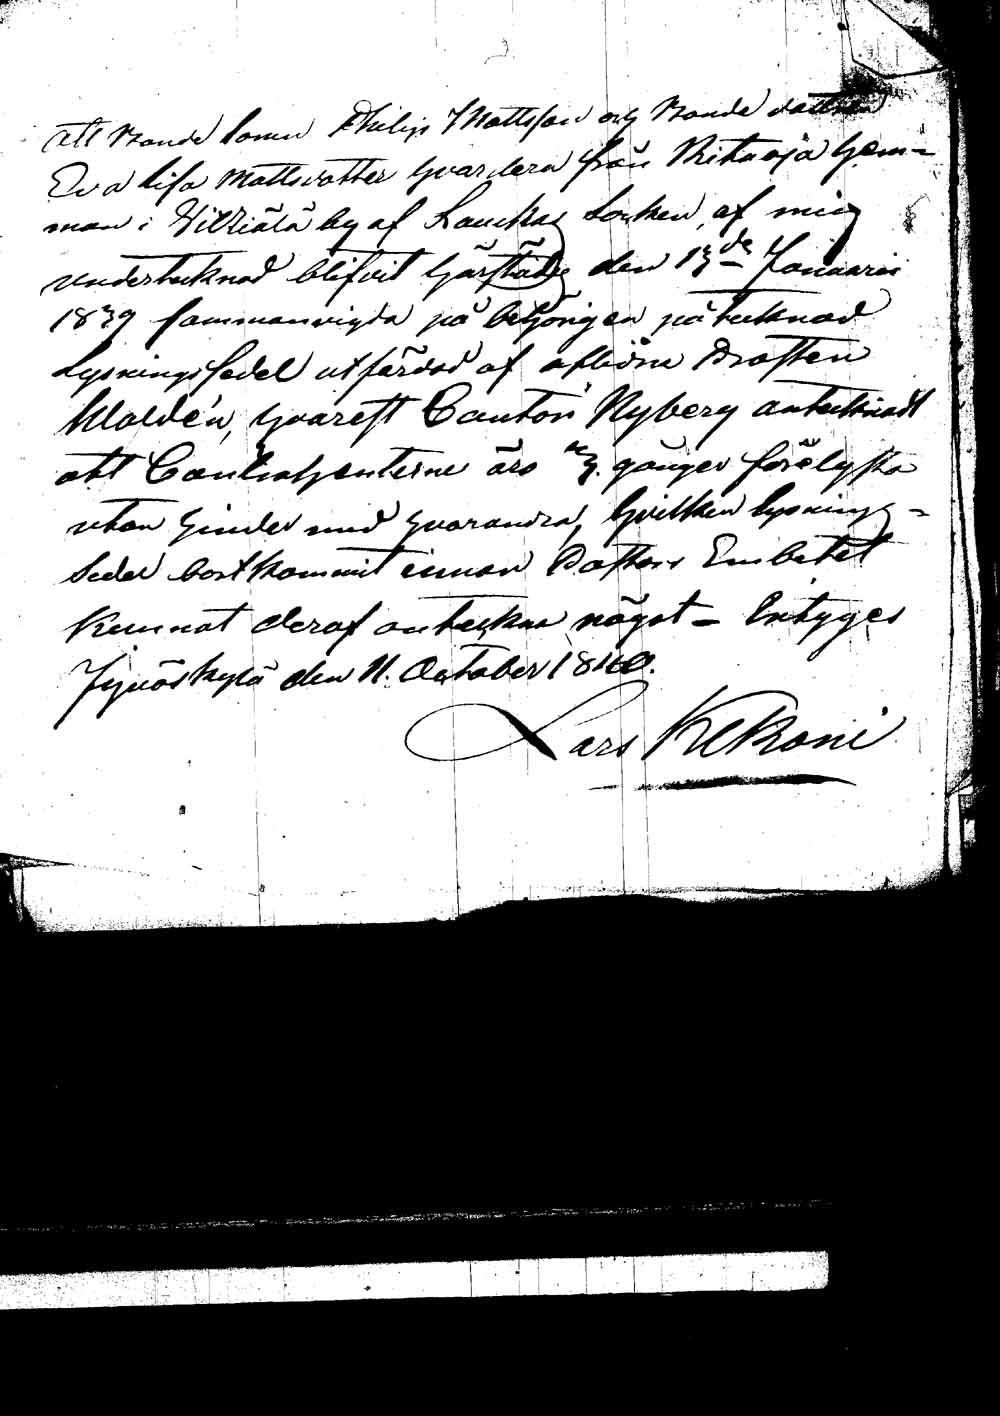 Att Bonde sonen Philip Mattsson och Bonde dottren
Eva Lisa Mattsdotter hvardera från Ritaoja hem=
man i Vihiälä by af Laukas Socken, af mig
undertecknad blifvit härstädes den 13de Januarii
1839 sammanvigda på behörigen påtecknad
Lysnings Sedel utfärdad af aflidne Prosten
Waldén, hvarest Cantor Nyberg antecknadt
att Contrahenterne äro 3. gånger förelysta
utan hinder med hvarandra, hvilken lysnings=
Sedel bortkommit innan Pastors Embetet
kunnat deraf anteckna något – Intyges
Jyväskylä den 11. October 1840.
Lars Kekoni